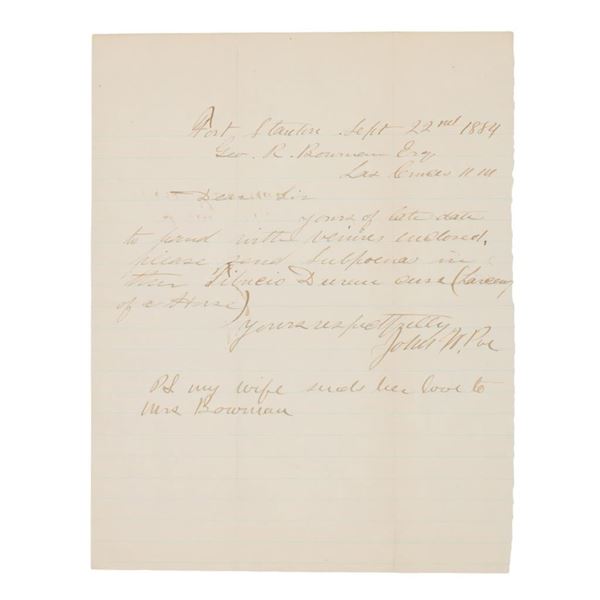 Fort Stanton Sept 22nd 1884
Geo. R. Bowman Esq
Las Cruces N M
Dear Sir
yours of late date
to hand with venires enclosed,
please send Subpoena in
Duran case (Larceny
of a Horse)
yours respectfully
John W. Poe
PS my wife sends her love to
Mrs Bowman